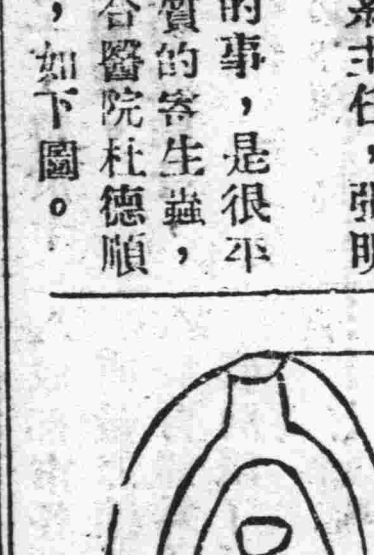 系主任，張明
的事，是很平
質的寄生蟲，
合醫院杜德順
，如下圖。